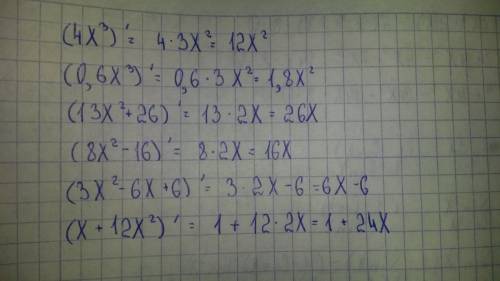 (4x³)' = 4·3x² = 12x²
(0,6x³)' = 0,6·3x² = 1,8x²
(13x²+26)' = 13·2x = 26x
(8x²-16)' = 8·2x = 16x
(3x²-6x+6)' = 3·2x-6 = 6x-6
(x+12x²)' = 1+12·2x = 1+24x